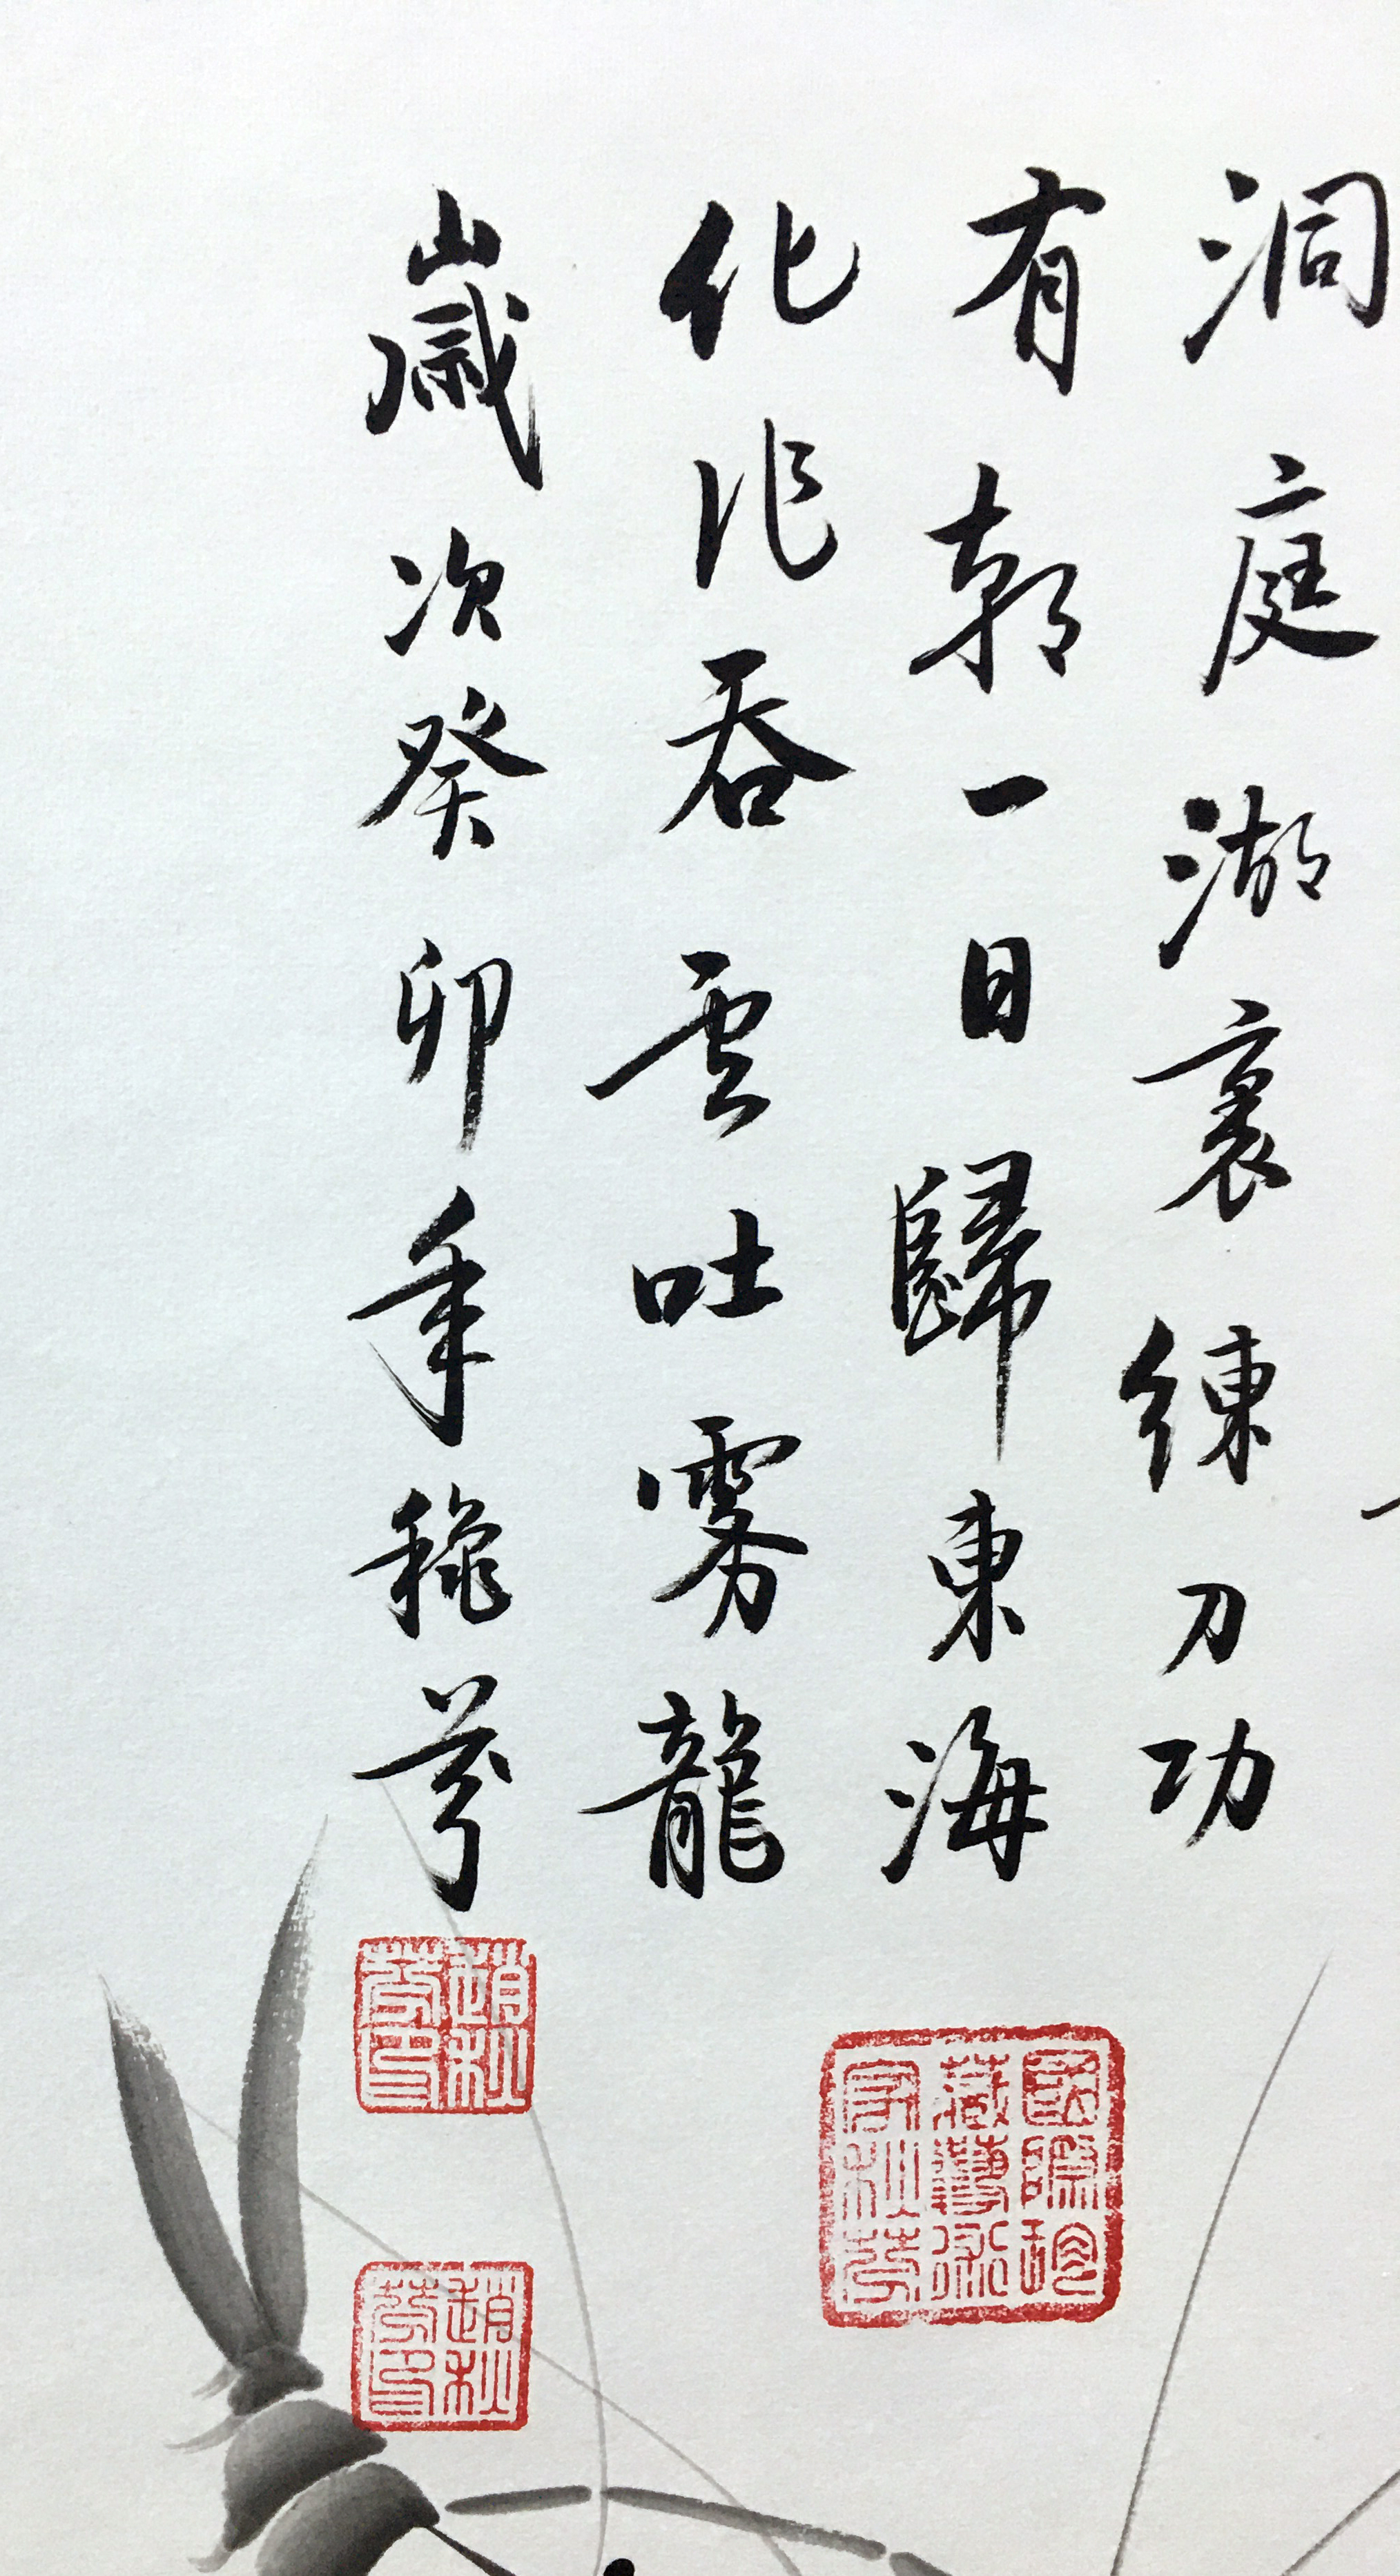 洞庭湖裏練刀功
有朝一日歸東海
化作吞雲吐雾龍
歲次癸卯年穐芩
國際珍
藏藝術
家秋芩
趙秋
芩印
趙秋
芩印